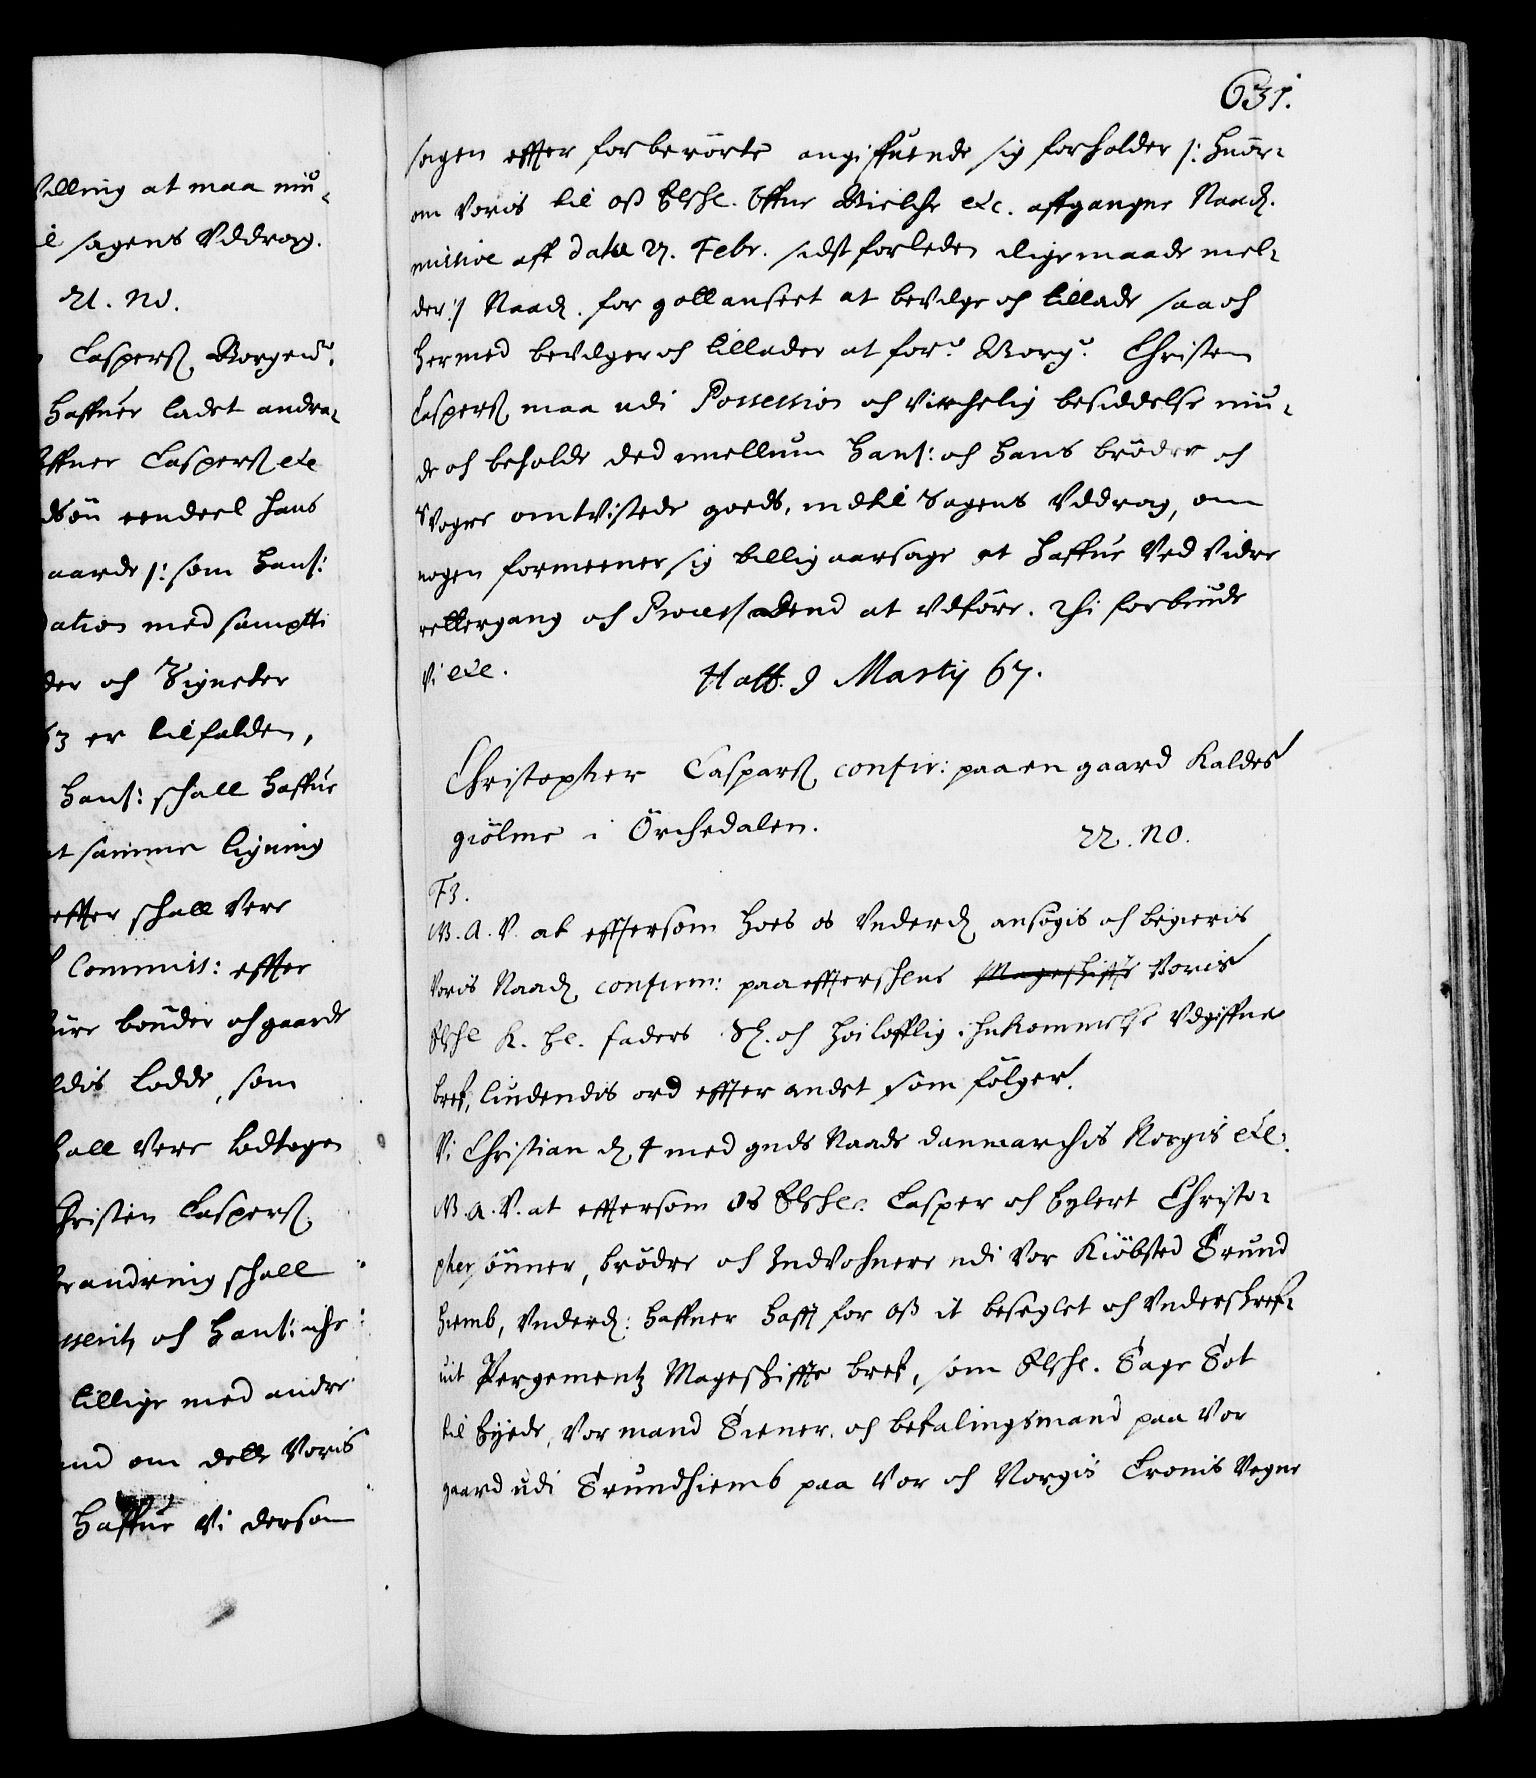 villing at maa niu-
il sagens Uddrag.
21. No.
Caspers. Borger
haffuer ladet andra-
Offuer Caspers. etc
dsön eendeel hans
gaarde /: som hans:
dation med samptl:
der och Signeter
63 er tilfalden,
hans: schall haffue
at samme ligning
effter schall Vere
Commis: effter
üre bönder och gaarde
ldis Lodde, som
schall Vere bodtagen
Christen Caspers.
brandring schall
och hans: iche
tillige med andre
end om dette Voris
Haffue Vi dersom
631.
sagen effter forberörte angiffuende sig forholder /: huor-
om Voris til oss Elschl. Offue Bielche etc. affgangne Naad.
missive aff data 27. Febr. sidst forleden lige maade mel-
der :/ Naad. for got anseet at bevilge och tillade saa och
hermed bevilger och tillader at for.e Borg.r Christen
Caspers. maa udi Possession och virchelig besiddelse niu-
de och beholde ded mellum hans: och hans brödre och
Svogre omtvistede goeds, indtil Sagens Uddrag, om
nogen formeener sig billig aarsage at haffue Ved Vidre
rettergang och Process at Udföre. Thi forbiude
Vi etc. Haff. 9 Martij 67.
Christopher Caspars. confir: paa en gaard Kaldes
giölme i Örchedalen. 22. No.
F3.
W. A. V. at efftersom hoes os Underd. ansögis och begieris
Voris Naad. confirm: paa effterschrne Mageschiffte Voris
Elschl K. Hl. faders Sl. och höiloflig ihukommelse Udgiffne
bref, liudendis ord effter andet som fölger.
Vi Christian d. 4 med guds Naade danmarchis Norgis etc.
W. A. V. at efftersom os Elschl. Casper och Eylert Christo-
phersönner, brödre och Indvohnere udi Vor Kiöbsted Trund
hiemb, Underd: haffuer hafft for oss it beseglet och Underschref-
uit Pergementz Mageschiffte bref, som Elschl. Tage Tot
til Eyede, Vor mand Tiener och befalingsmand paa Vor
gaard udi Trundhiemb paa Vor och Norgis Cronis Vegne